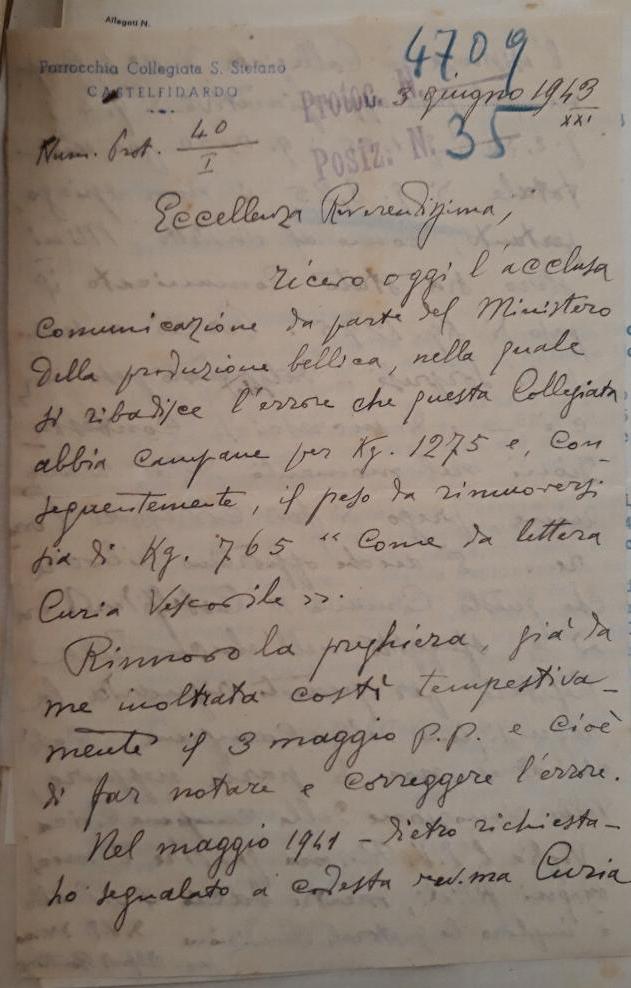 Allegati N.
Parrocchia Collegiata S. Stefano
CASTELFIDARDO
4709
Protoc. N.
3 giugno 1943
XXI
Num. Prot. 40
I
Posiz. N. 35
Eccellenza Reverendissima,
ricevo oggi l'acclusa
comunicazione da parte del Ministero
della produzione bellica, nella quale
si ribadisce l'errore che questa Collegiata
abbia campane per Kg. 1275 e, con
seguentemente, il peso da rimuoversi
sia di Kg. 765 “ come da lettera
Curia Vescovile ».
Rinnovo la preghiera, già da
me inoltrata costì tempestiva-
mente il 3 maggio p.p. e cioè
di far notare e correggere l'errore.
Nel maggio 1941 - dietro richiesta -
ho segnalato a codesta rev.ma Curia